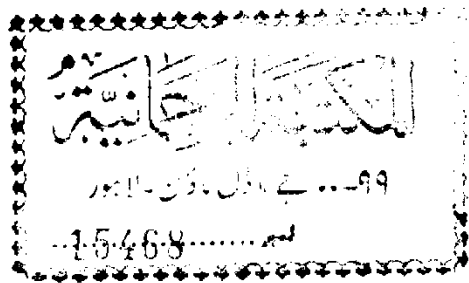 المكتبة الرحمانية
۹۹... جے ماڈل ٹاؤن - لاہور
نمبر 15468